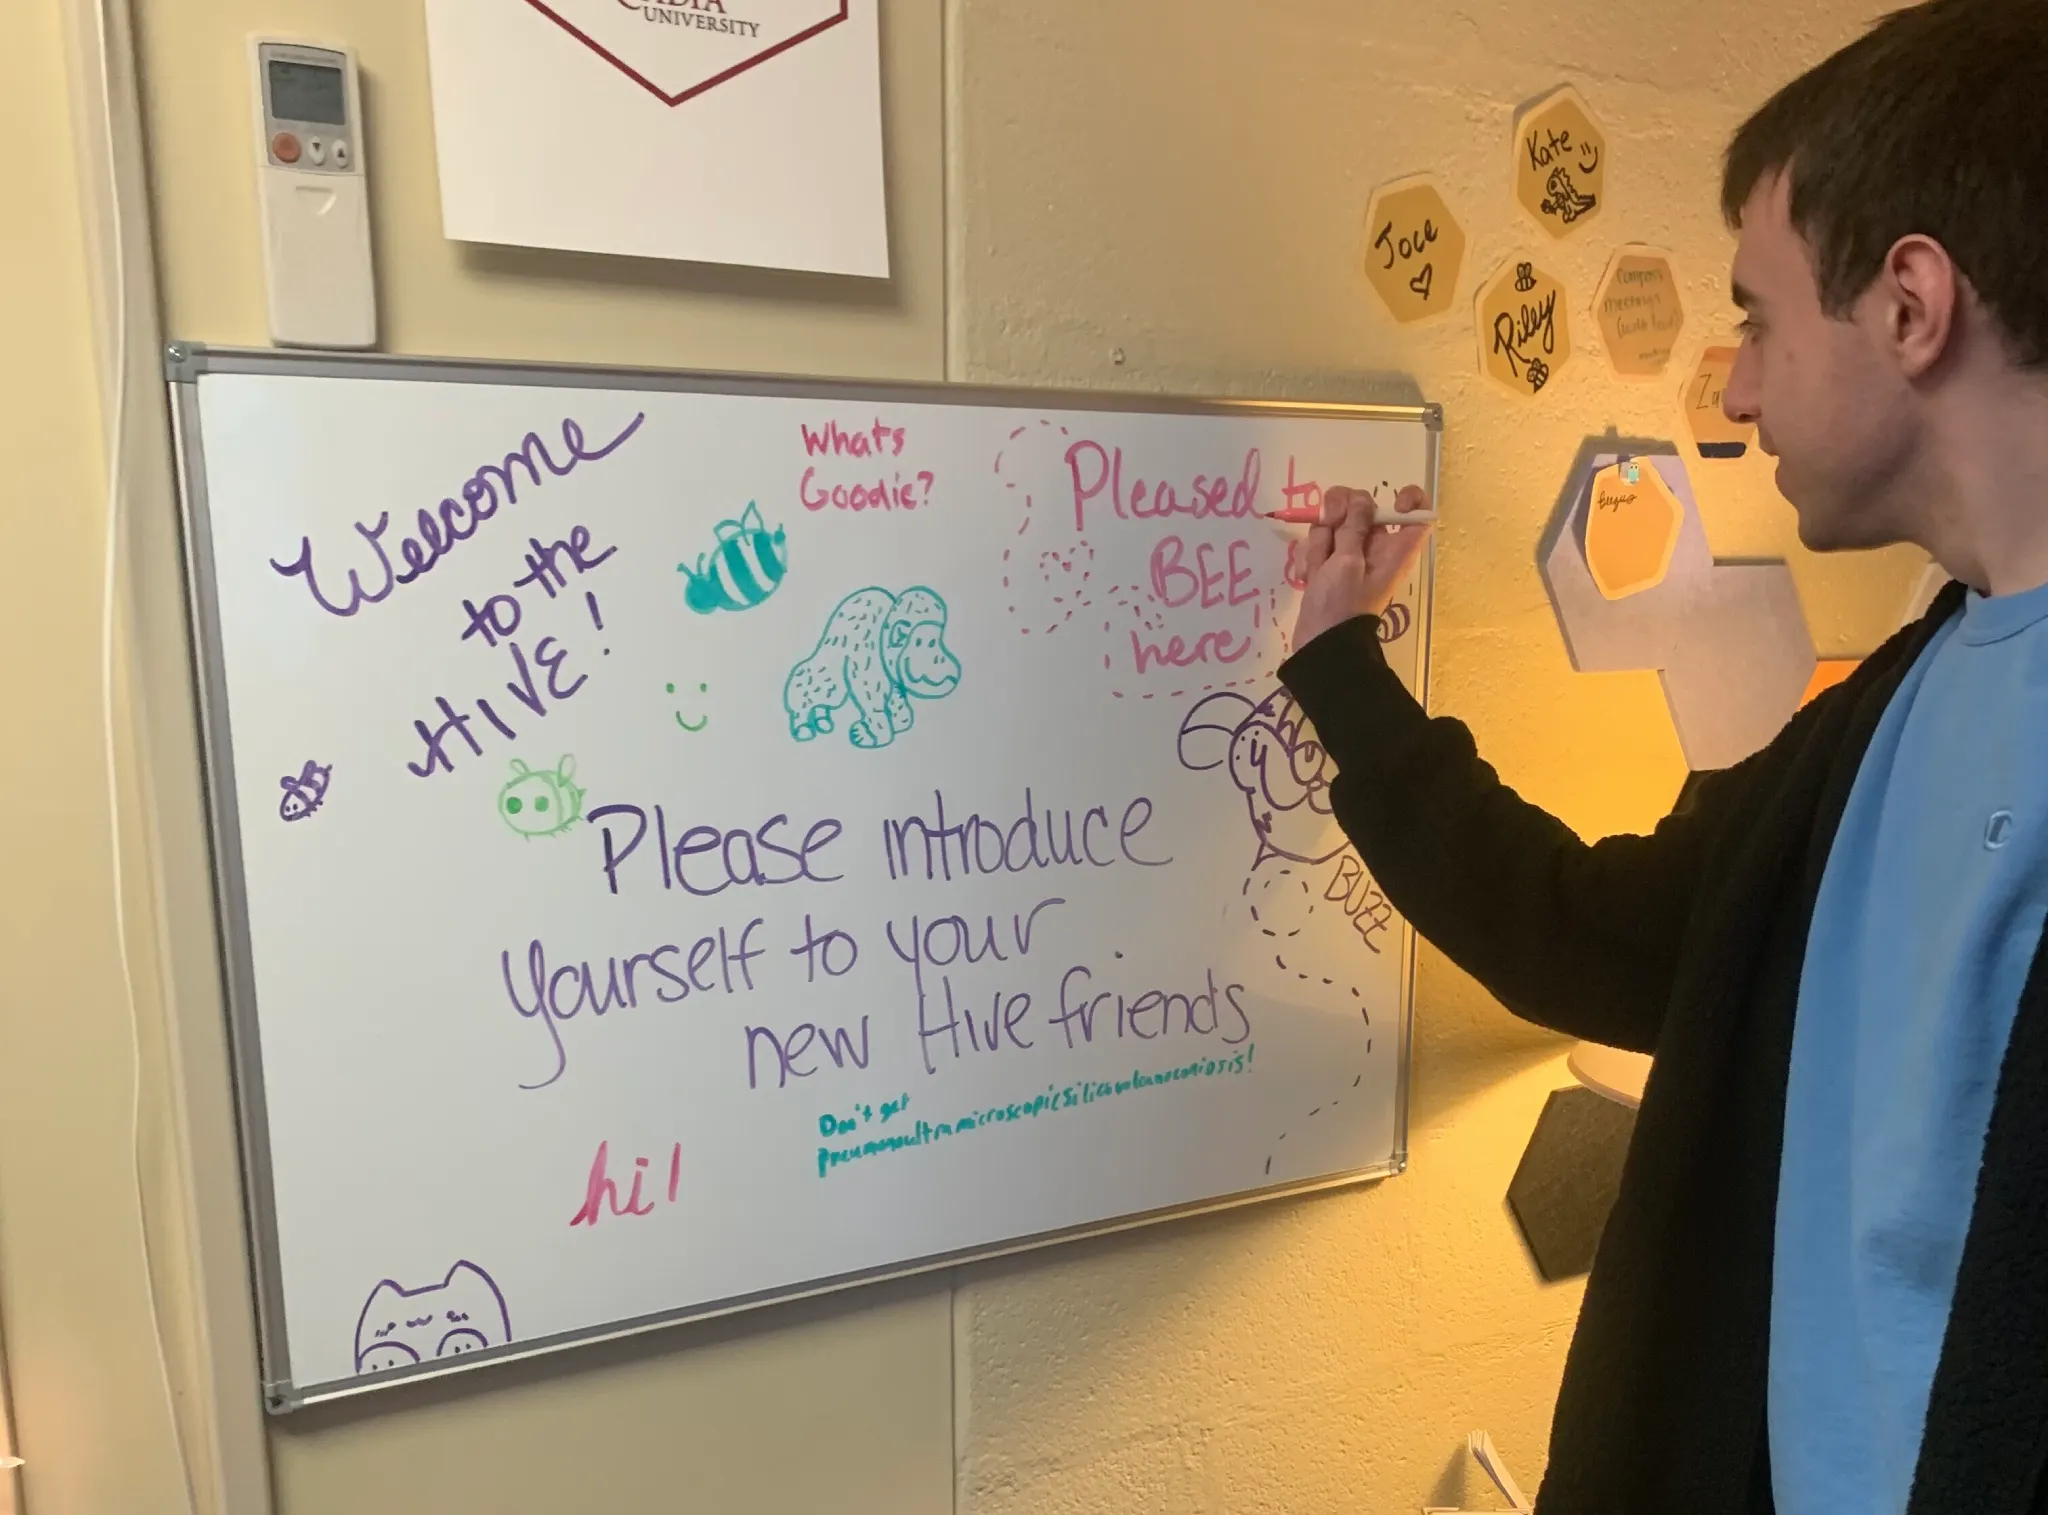 UNIVERSITY
Kate
Joce
Riley
Welcome
to the
HIVE!
Whats
Goodie?
Pleased to
BEE
here!
BUZZ
Please introduce
yourself to your
new Hive friends
Don't get
pneumonoultramicroscopicsilicovolcanoconiosis!
hi!